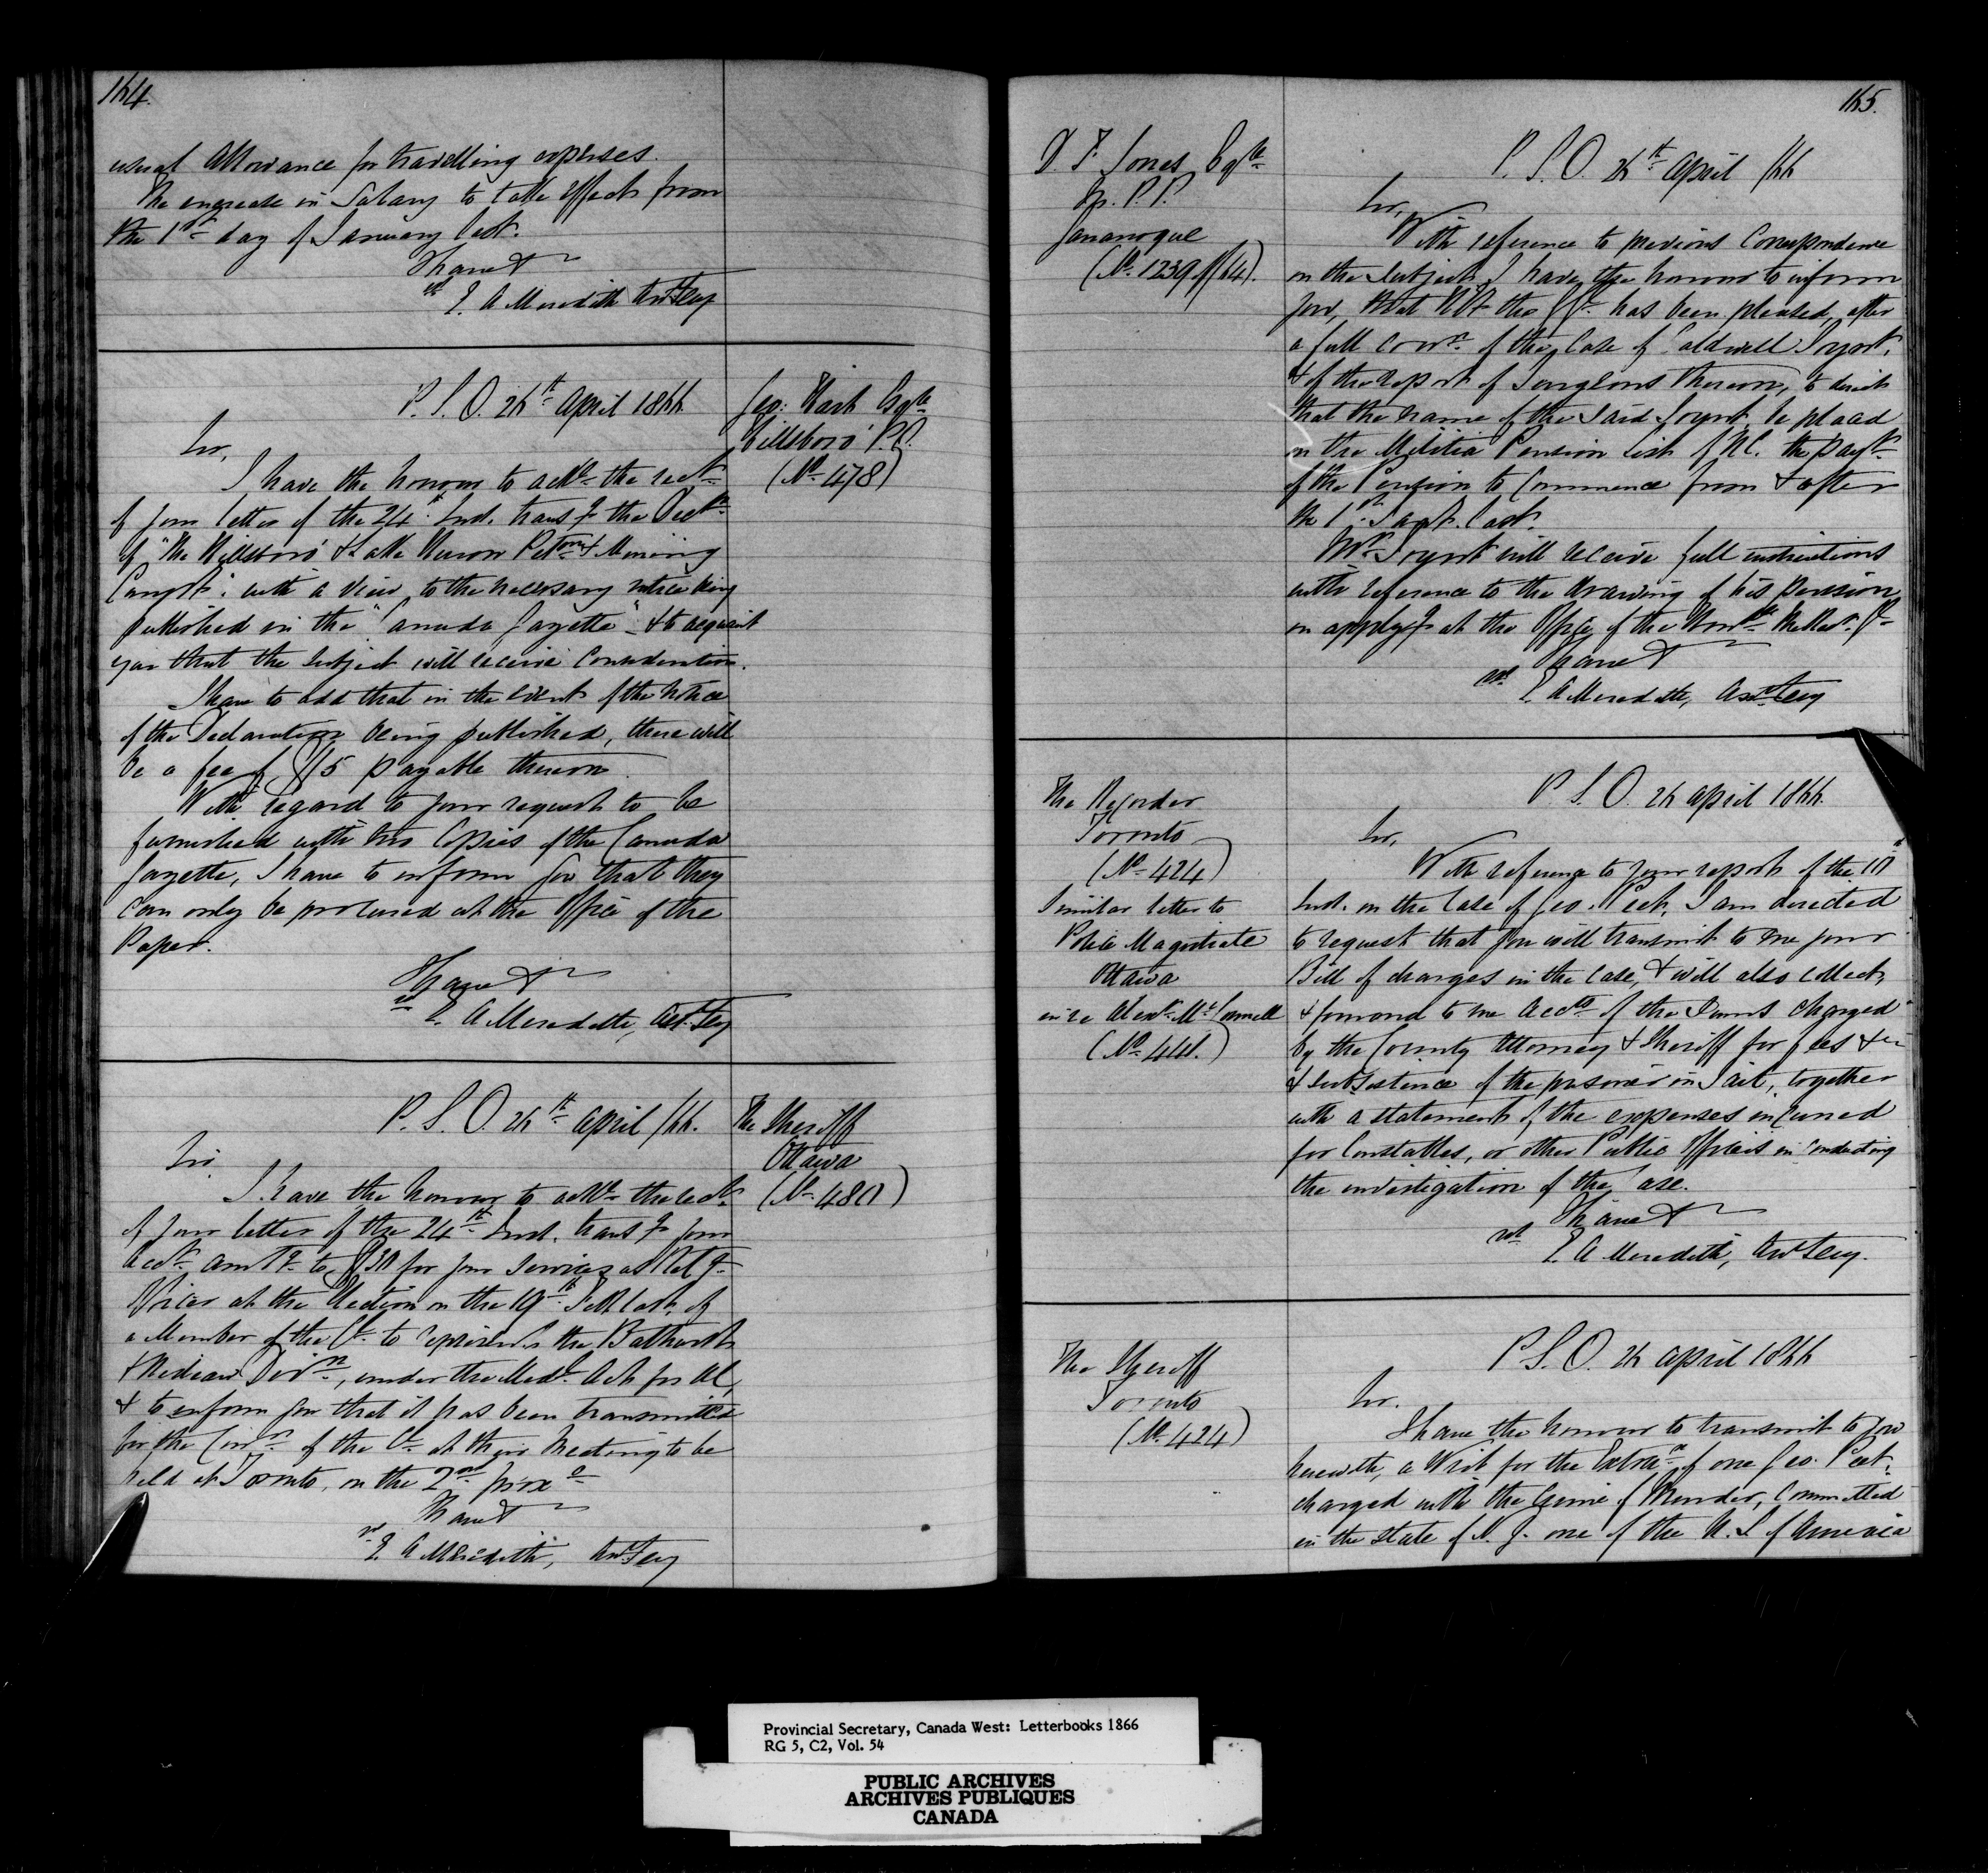 164.
usual Allowance for travelling expenses.
The encrease in Salary to take effect from
the 1st day of January last.
I have &
E. A Meredith Asst Secy
P. S. O. 26th April 1866
Geo: Hash Esqre
Hillsboro' P.O.
(No 478)
Sir,
I have the honour to ackn the rect
of your letter of the 24th Inst. transg the Decln
of "The Hillsboro' & Lake Huron Petm & Mining
Compy": with a view to the necessary notice being
published in the "Canada Gazette" & to acquaint
you that the subject will receive consideration.
I have to add that in the event of the notice
of the Declaration being published, there will
be a fee of $15 payable thereon.
With regard to your request to be
furnished with two Copies of the Canada
Gazette, I have to inform you that they
can only be procured at the Office of the
Paper.
I have &
E. A Meredith, Asst Secy
P. S. O. 26th April /66.
The Sheriff
Ottawa
(No 480)
Sir
I have the honour to ackn the rect
of your letter of the 24th Inst. transg your
acct amtg to $30 for your services as Retg
Officer at the Election on the 19th last, of
a Member of the Cl. to represent the Bathurst
& Rideau Divn, under the Medl Act for UC,
& to inform you that it has been transmitted
for the Conn of the Cl at their Meeting to be
held at Toronto, on the 2nd proxo
I have &
E. A Meredith, Asst Secy
165.
D. F Jones Esqre
M. P. P.
Gananoque
(No 1239 of/64).
P. S. O. 26th April /66
Sir,
With reference to previous Correspondence
on the subject, I have the honour to inform
you, that HE the GG. has been pleased, after
a full conn of the Case of Caldwell
& of the report of Surgeons thereon, to direct
that the name of the said be placed
on the Militia Pension List of UC. the payt
of the Pension to Commence from & after
the 1st Sept. last.
Mr will receive full instructions
with reference to the drawing of his pension,
on applyg at the Office of the Honble the Recr Gl
I have &
E. A Meredith, Asst Secy
The Recorder
Toronto
(No 424)
Similar letter to
Police Magistrate
Ottawa
in re Alexr McConnell
(No 441.)
P. S. O. 26 April 1866.
Sir,
With reference to your report of the 10th
Inst. on the Case of Geo. Peck, I am directed
to request that you will transmit to me your
Bill of charges in the case, & will also collect,
& forward to me accts of the sums charged
by the County Attorney & Sheriff for fees &c
& subsistence of the prisoner in Jail, together
with a statement of the expenses incurred
for Constables, or other Public Officers in conducting
the investigation of the Case.
I have &
E. A Meredith, Asst Secy.
The Sheriff
Toronto
(No 424)
P. S. O. 26 April 1866
Sir.
I have the honour to transmit to you
herewith, a Writ for the Extran of one Geo. Peck,
charged with the Crime of Murder, Committed
in the State of N. J. one of the U. S of America
Provincial Secretary, Canada West: Letterbooks 1866
RG 5, C2, Vol. 54
PUBLIC ARCHIVES
ARCHIVES PUBLIQUES
CANADA